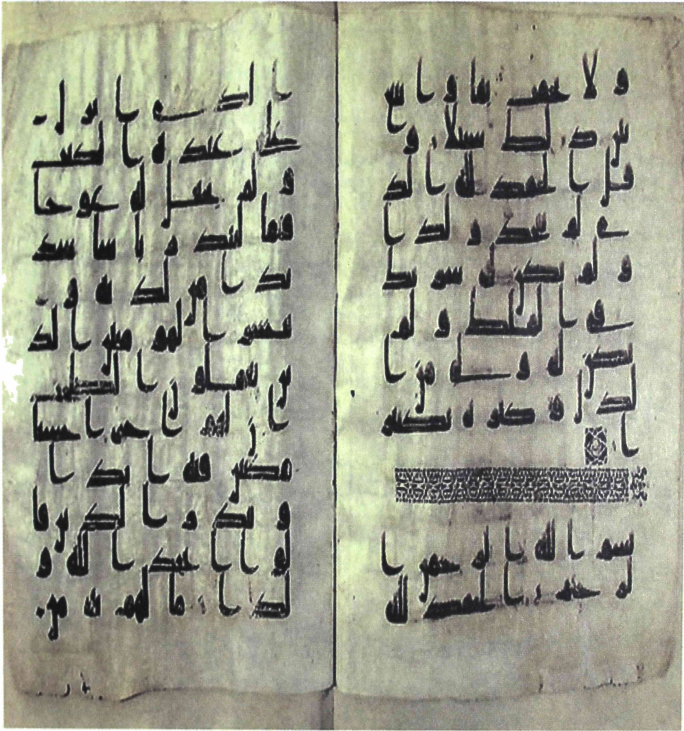 ولا تخافت بها وابتغ
بين ذلك سبيلا و
قل الحمد لله الذ
ي لم يتخذ ولدا
و لم يكن له شريك
في الملك و لم
يكن له ولي من ا
لذل و كبره تكبير
ا
بسم الله الرحمن ا
لرحيم الحمد لله
الذي انزل
على عبده الكتب
و لم يجعل له عوجا
قيما لينذر باسا شد
يدا من لدنه و
يبشر المومنين الذ
ين يعملون الصلحت
ان لهم اجرا حسنا
مكثين فيه ابدا
و ينذر الذين قا
لوا اتخذ الله و
لدا ما لهم به من